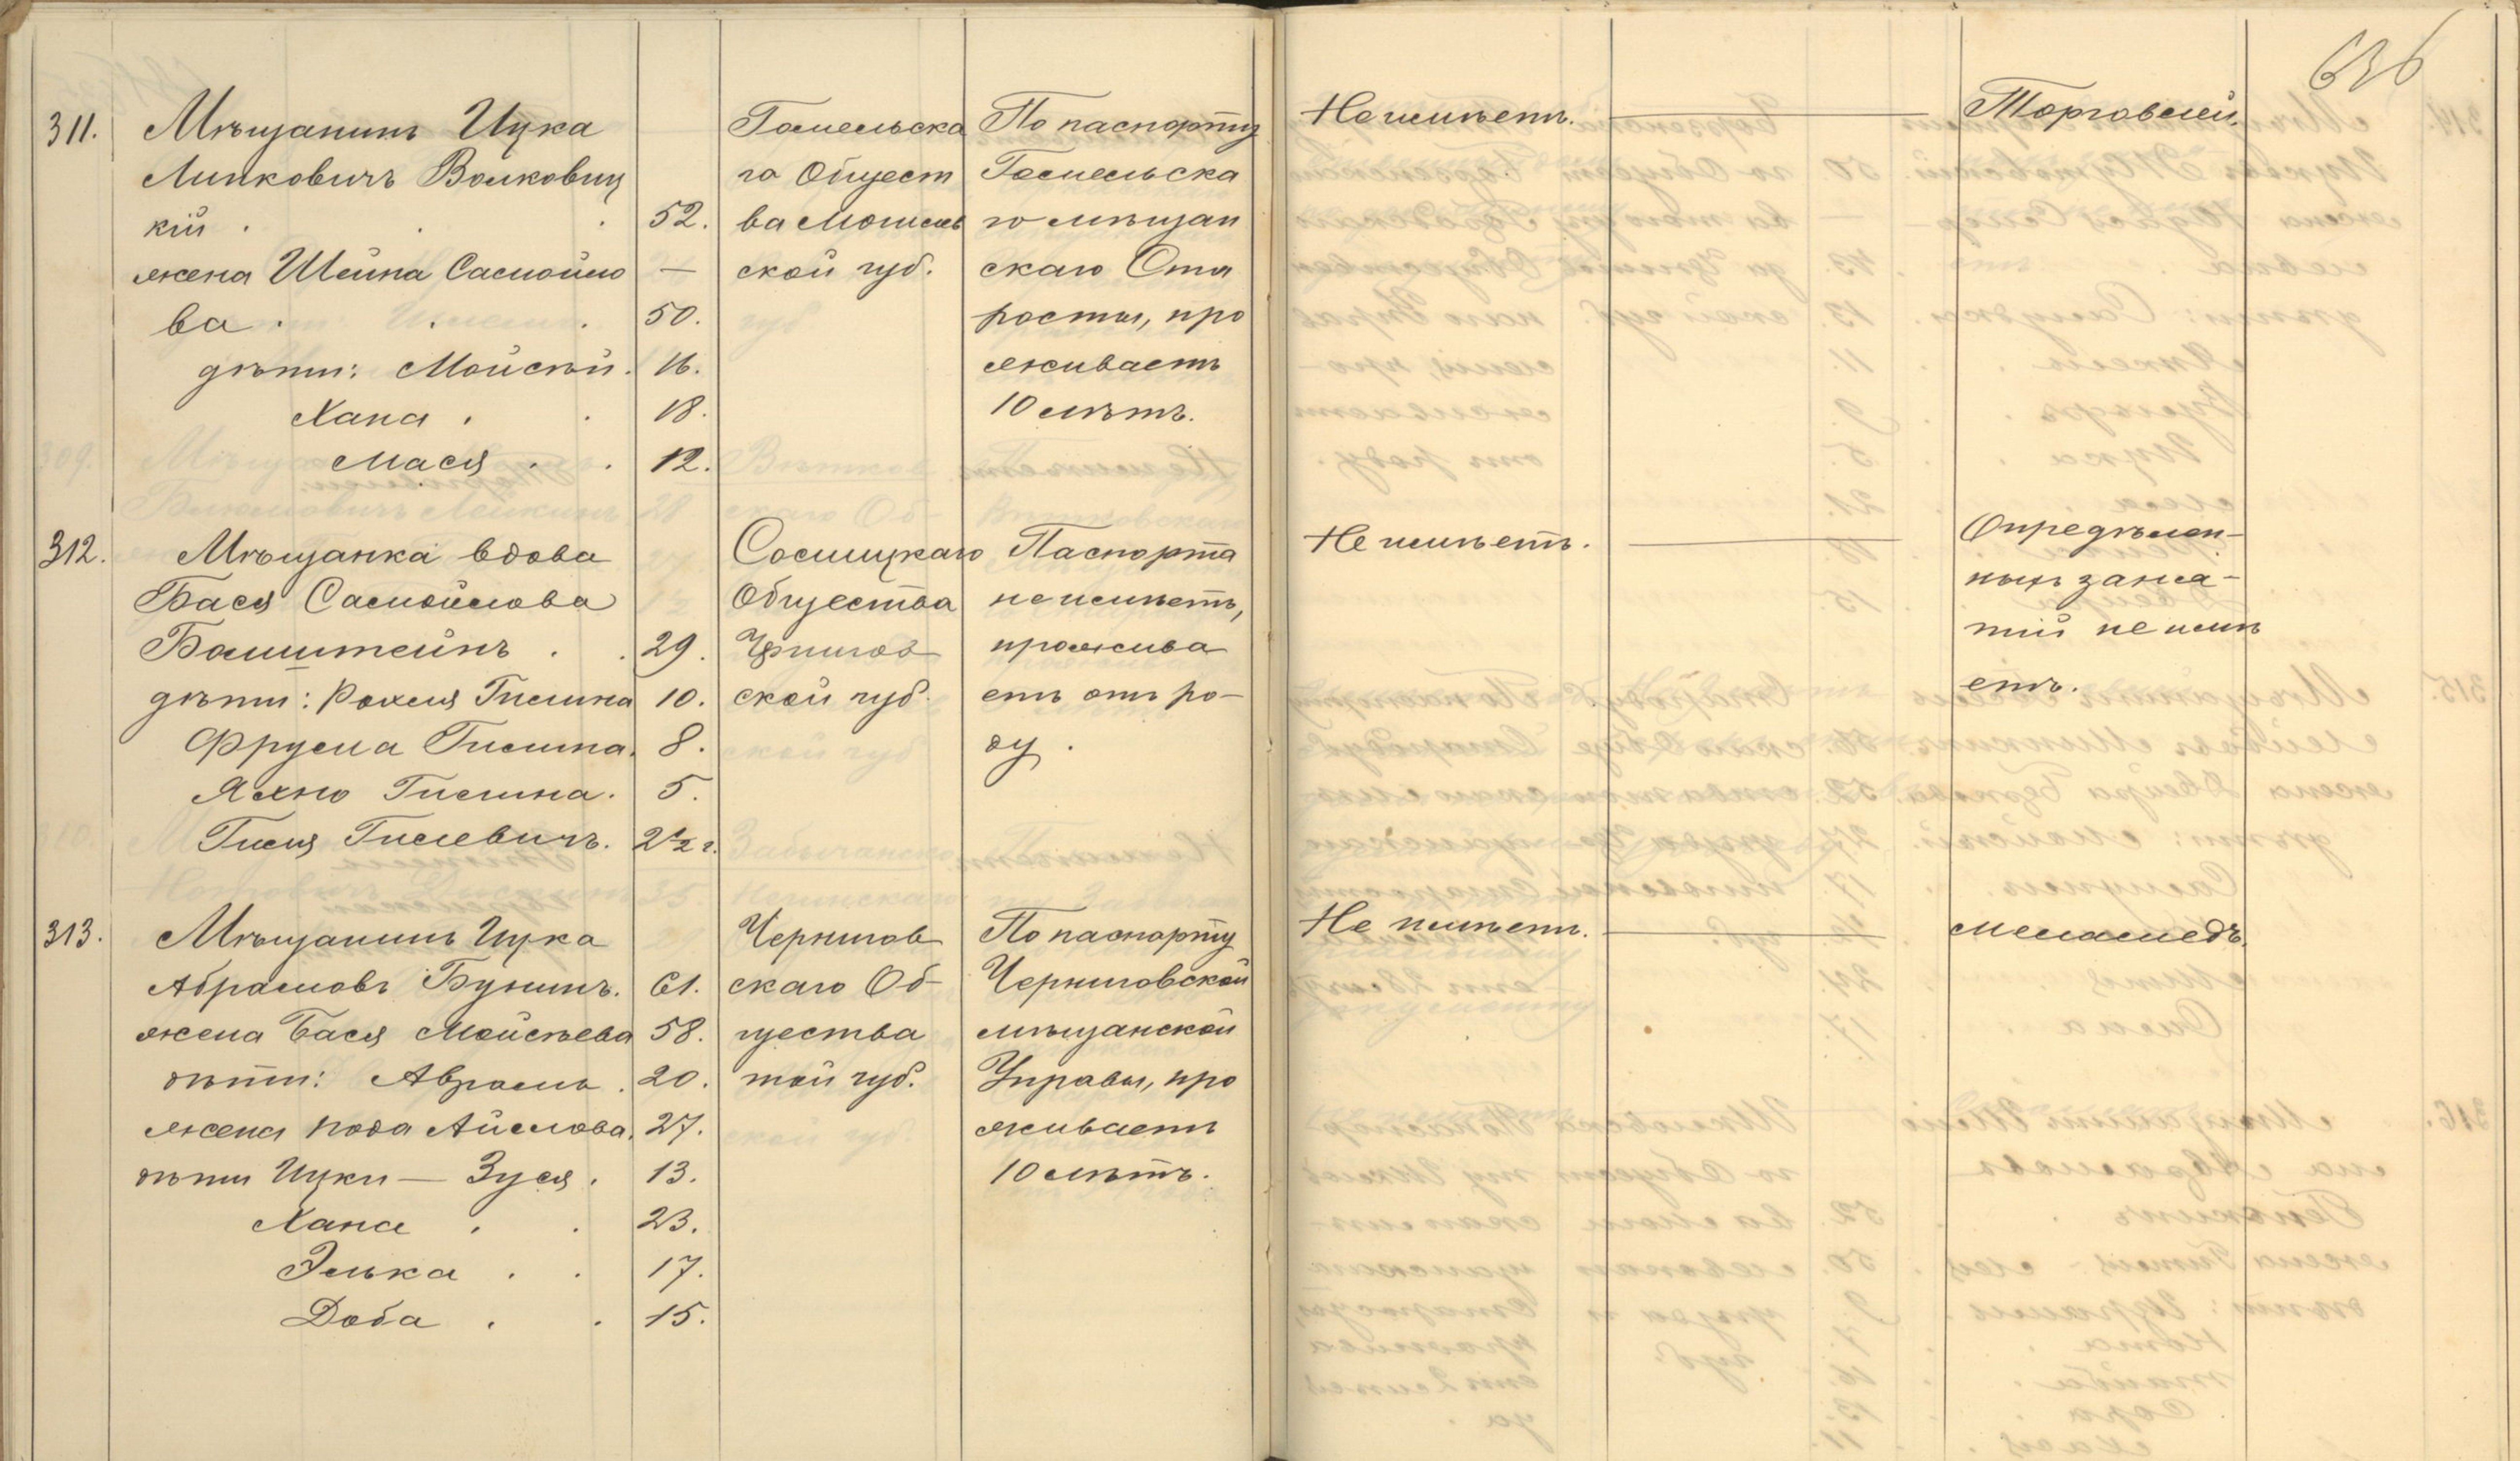 636
311.
Мѣщанинъ Ицка
Липковичъ Волковиц
кій . . . 52.
жена Шейна Самойло —
ва . . . 50.
дѣти: Мойсѣй. 16.
Хана . . 18.
Мася . . 12.
Гомельска
го Общест
ва Могилев
ской губ.
По паспорту
Гомельска
го мѣщан
скаго Ста
росты, про
живаетъ
10 лѣтъ.
Не имѣетъ. —
Торговлей.
312.
Мѣщанка вдова
Бася Самойлова
Болштейнъ . . 29.
дѣти: Рохля Гилина 10.
Фрума Гилина. 8.
Яхно Гилина. 5.
Гиля Гилевичъ. 2 1/2 г.
Сосницкаго
Общества
Чернигов
ской губ.
Паспорта
не имѣетъ,
прожива
етъ отъ ро-
ду.
Не имѣетъ. —
Опредѣлен-
ныхъ заня-
тій не имѣ
етъ.
313.
Мѣщанинъ Ицка
Абрамовъ Бунинъ. 61.
жена Бася Мойсѣева 58.
дѣти: Аврамъ . 20.
жена Рода Айзлова. 27.
дѣти Ицки — Зуся . 13.
Хана . . 23.
Элька . . 17.
Доба . . 15.
Чернигов
скаго Об-
щества
той губ.
По паспорту
Черниговской
мѣщанской
Управы, про
живаетъ
10 лѣтъ.
Не имѣетъ. —
меламедъ.